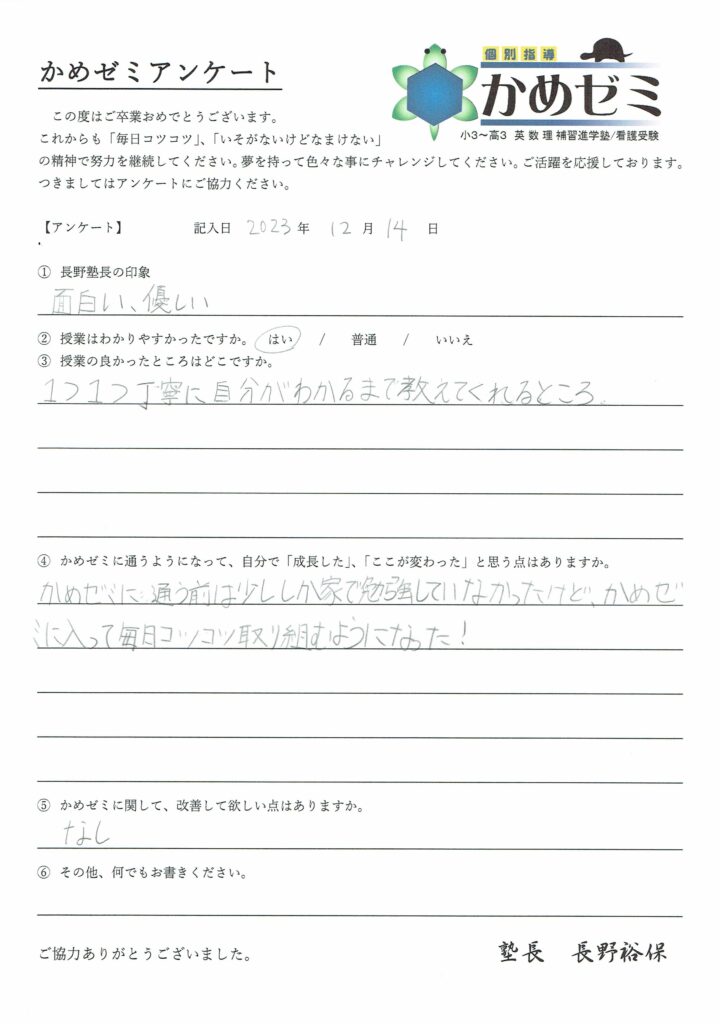 かめゼミアンケート
個別指導
かめゼミ
小3～高3 英数理補習進学塾/看護受験
この度はご卒業おめでとうございます。
これからも「毎日コツコツ」、「いそがないけどなまけない」
の精神で努力を継続してください。夢を持って色々な事にチャレンジしてください。ご活躍を応援しております。
つきましてはアンケートにご協力ください。
【アンケート】 記入日 2023 年 12 月 14 日
① 長野塾長の印象
面白い、優しい
② 授業はわかりやすかったですか。 はい / 普通 / いいえ
③ 授業の良かったところはどこですか。
1つ1つ丁寧に自分がわかるまで教えてくれるところ。
④ かめゼミに通うようになって、自分で「成長した」、「ここが変わった」と思う点はありますか。
かめゼミに通う前は少ししか家で勉強していなかったけど、かめゼ
ミに入って毎日コツコツ取り組むようになった！
⑤ かめゼミに関して、改善して欲しい点はありますか。
なし
⑥ その他、何でもお書きください。
ご協力ありがとうございました。
塾長 長野裕保